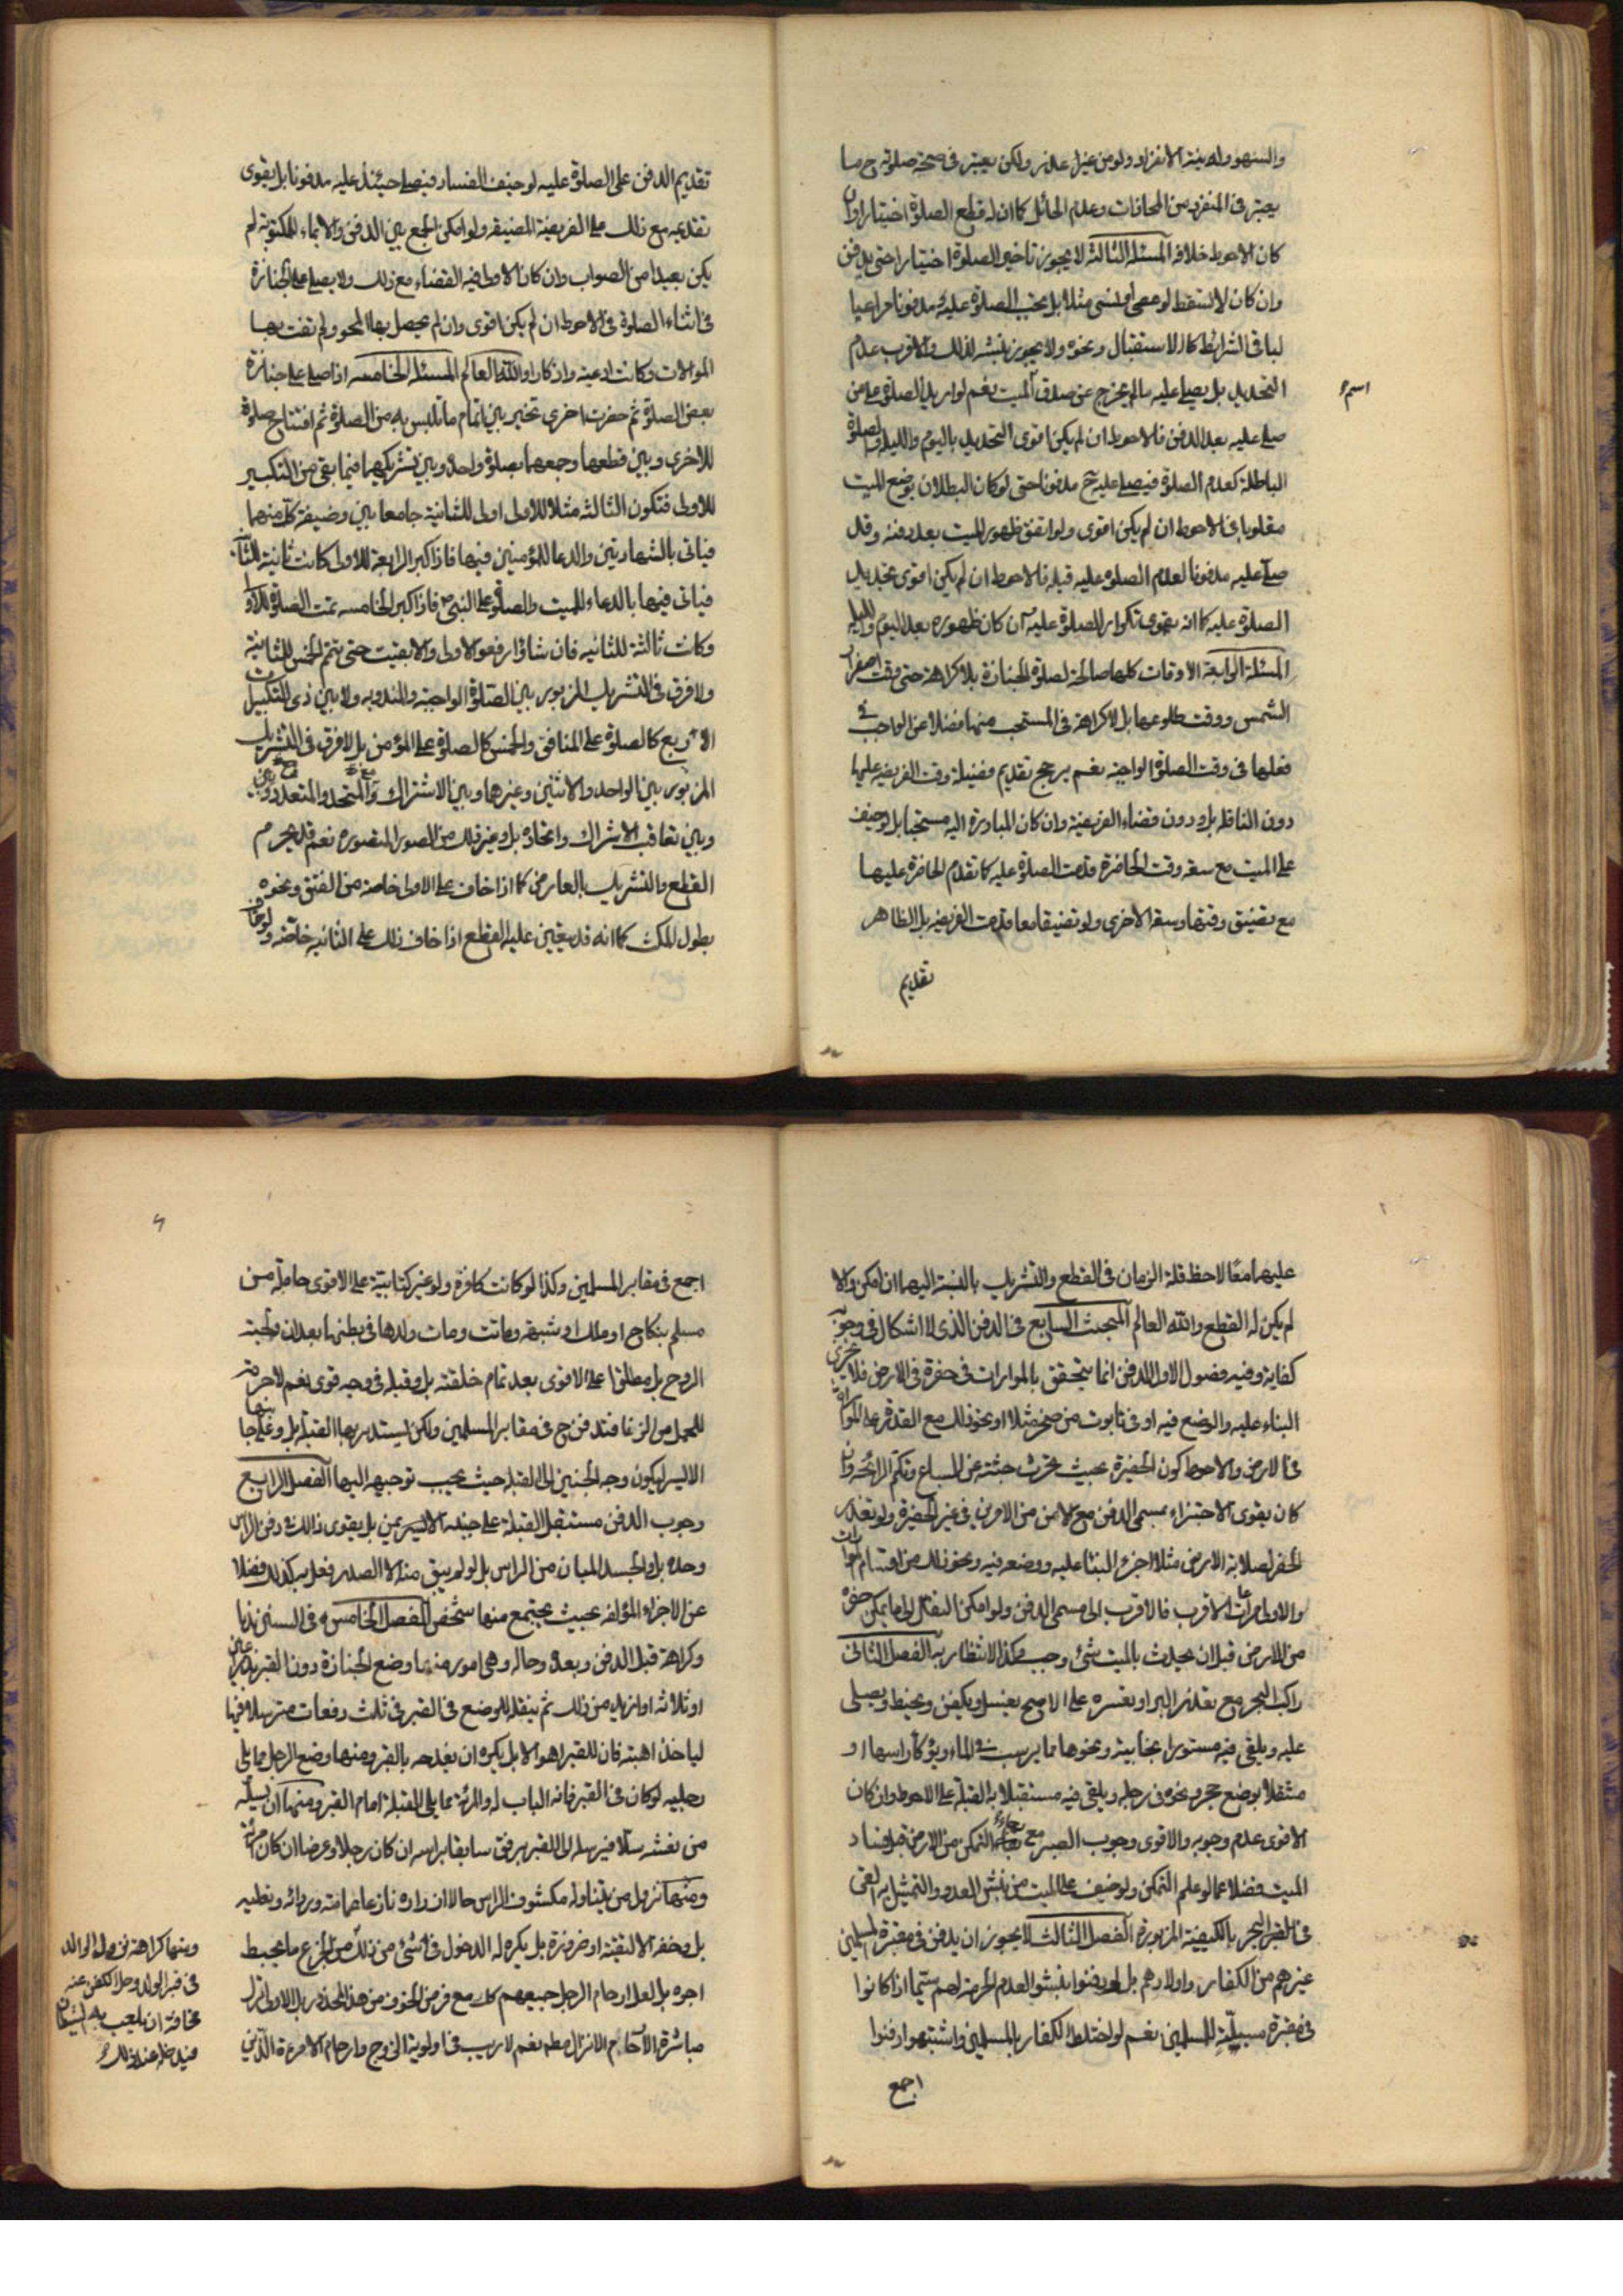 والسهو وله نية الانفراد ولو من غير عذر ولكن يعتبر فى صحة صلوته ح ما
يعتبر فى المنفرد من المحاذات وعدم الحائل كما ان له قطع الصلوة اختيارا وان
كان الاحوط خلافه المسئلة الثالثة لا يجوز تاخير الصلوة اختيارا حتى يدفن
وان كان لا تسقط لو عصى او نسى مثلا بل يجب الصلوة عليه مدفونا مراعيا
لباقى الشرائط كالاستقبال ونحوه ولا يجوز نبشه لذلك والاقرب عدم
التحديد بل يصلى عليه ما لم يخرج عن صدق اسم الميت نعم لو اريد الصلوة على من
صلى عليه بعد الدفن فالاحوط ان لم يكن اقوى التحديد باليوم والليلة والصلوة
الباطلة كعدم الصلوة فيصلى عليه ح مدفونا حتى لو كان البطلان بوضع الميت
مقلوبا فى الاحوط ان لم يكن اقوى ولو اتفق ظهور الميت بعد دفنه وقد
صلى عليه مدفونا لعدم الصلوة عليه قبله فالاحوط ان لم يكن اقوى تجديد
الصلوة عليه كما انه يقوى تكرار الصلوة عليه ان كان ظهوره بعد اليوم والليلة
المسئلة الرابعة الاوقات كلها صالحة لصلوة الجنازة بلا كراهة حتى وقت اصفرار
الشمس ووقت طلوعها بل لا كراهة فى المستحب منها فضلا عن الواجب فى
فعلها فى وقت الصلوة الواجبة نعم يرجح تقديم فضيلة وقت الفريضة عليها
دون النافلة بل ودون قضاء الفريضة وان كان المبادرة اليه مستحبا بل لو خيف
على الميت مع سعة وقت الحاضرة قدمت الصلوة عليه كما تقدم الحاضرة عليها
مع تضيق وقتها وسعة الاخرى ولو تضيقا معا قدمت الفريضة بل الظاهر
تقديم
تقديم الدفن على الصلوة عليه لو خيف الفساد فيصلى حينئذ عليه مدفونا بل يقوى
تقديمه مع ذلك على الفريضة المضيقة ولو امكن الجمع بين الدفن والايماء للمكتوبة لم
يكن بعيدا من الصواب وان كان الاولى فيه القضاء مع ذلك ولا يصلى على الجنازة
فى اثناء الصلوة فى الاحوط ان لم يكن اقوى وان لم يحصل بها المحو ولم تفت بها
الموالات وكانت ادعية واذكارا والله العالم المسئلة الخامسة اذا صلى على جنازة
بعض الصلوة ثم حضرت اخرى تخير بين اتمام ما تلبس به من الصلوة ثم افتتاح صلوة
للاخرى وبين قطعها وجمعهما بصلوة واحدة وبين تشريكهما فيما بقى من التكبير
للاولى فتكون الثالثة مثلا للاولى اولى للثانية جامعا بين وضيفة كل منهما
فياتى بالشهادتين والدعا للمؤمنين فيها فاذا كبر الرابعة للاولى كانت ثانية للثانية
فياتى فيها بالدعاء للميت والصلوة على النبى ص فاذا كبر الخامسة تمت الصلوة للاولى
وكانت ثالثة للثانية فان شاؤا رفعوا الاولى والا بقيت حتى يتم الخمس للثانية
ولا فرق فى التشريك المزبور بين الصلوة الواجبة والمندوبة ولا بين ذى التكبيرات
الاربع كالصلوة على المنافق والخمس كالصلوة على المؤمن بل لا فرق فى التشريك
المزبور بين الواحد والاثنين وغيرهما وبين الاشتراك والمتحد والمتعدد وبين
وبين تعاقب الاشراك واتحاده بل وغير ذلك من الصور المتصورة نعم قد يحرم
القطع والتشريك بالعارض كما اذا خاف على الاولى خاصة من الفتق ونحوه
بطول المكث كما انه قد يتعين عليه القطع اذا خاف ذلك على الثانية خاصة ولو خاف
عليهما معا لاحظ قلة الزمان فى القطع والتشريك بالنسبة اليهما ان امكن والا
لم يكن له القطع والله العالم المبحث السابع فى الدفن الذى لا اشكال فى وجوبه
كفاية وفيه فصول الاول الدفن انما يتحقق بالموارات فى حفرة فى الارض فلا يجزى
البناء عليه والوضع فيه او فى تابوت من صخر مثلا او نحو ذلك مع القدرة على الموارات
فى الارض والاحوط كون الحفيرة بحيث تحرث جثته عن السباع وتكتم الرائحة وان
كان يقوى الاجتزاء بمسمى الدفن مع الامن من الامرين فى غير الحفيرة ولو تعذر
الحفر لصلابة الارض مثلا اجزء البنا عليه ووضعه فيه ونحو ذلك من اقسام الموارات
والاولى مراعات الاقرب فالاقرب الى مسمى الدفن ولو امكن النقل الى ما يمكن حفره
من الارض قبل ان يحدث بالميت شئ وجب وكذا الانتظار به الفصل الثانى
راكب البحر مع تعذر البر او تعسره على الاصح يغسل ويكفن ويحنط ويصلى
عليه ويلقى فيه مستورا بخابية ونحوها مما يرسب فى الماء ويوكأ راسها او
مثقلا بوضع حجر ونحوه فى رجله ويلقى فيه مستقبلا به القبلة على الاحوط وان كان
الاقوى عدم وجوبه والاقوى وجوب الصبر مع رجاء التمكن من الارض قبل فساد
الميت فضلا عما لو علم التمكن ولو خيف على الميت من نبش العدو والتمثيل به القى
فى البحر بالكيفية المزبورة الفصل الثالث لا يجوز ان يدفن فى مقبرة المسلمين
غيرهم من الكفار واولادهم بل لو دفنوا نبشوا لعدم الحرمة لهم سيما اذا كانوا
فى مقبرة مسبلة للمسلمين نعم لو اختلط الكفار بالمسلمين واشتبهوا دفنوا
اجمع
اجمع فى مقابر المسلمين وكذا لو كانت كافرة ولو غير كتابية على الاقوى حاملة من
مسلم بنكاح او ملك او شبهة وماتت ومات ولدها فى بطنها بعد ان ولجته
الروح بل مطلقا على الاقوى بعد تمام خلقته بل وقبله فى وجه قوى نعم لا حرمة
للحمل من الزنا فتدفن ح فى مقابر المسلمين ولكن يستدبر بها القبلة بل وعلى جانبها
الايسر ليكون وجه الجنين الى القبلة حيث يجب توجيهه اليها الفصل الرابع
وجوب الدفن مستقبل القبلة على جنبه الايمن بل يقوى ذلك فى دفن الراس
وحده بل والجسد المبان من الراس بل لو لم يبق منه الا الصدر فعل به كذلك فضلا
عن الاجزاء المؤلفة بحيث يجتمع منها شخص الفصل الخامس فى السنن ندبا
وكراهة قبل الدفن وبعده وحاله وهى امور منها وضع الجنازة دون القبر بذراعين
او ثلاثه او ازيد من ذلك ثم ينقله للوضع فى القبر فى ثلث دفعات مترسلا فيها
لياخذ اهبته فان للقبر اهوالا بل يكره ان يفدحه بالقبر ومنها وضع الرجل مما يلى
رجليه لو كان فى القبر فانه الباب له والمرئة مما يلى القبلة امام القبر ومنها ان يسله
من نعشه سلا فيرسله الى القبر برفق سابقا براسه ان كان رجلا وعرضا ان كان مرئة
ومنها نزول من يتناوله مكشوف الراس حالا ازراره نازعا عمامته وردائه ونعليه
بل وخفه الا لتقية او ضرورة بل يكره له الدخول فى شئ من ذلك من الجزع ما يحبط
اجره بل لعل ارحام الرجل جميعهم كك مع فرض الخوف من هذا المحذور بل الاولى ترك
مباشرة الارحام الانزال مطم نعم لا ريب فى اولوية الزوج وارحام الامرءة الذين
ومنها كراهة نزول الوالد
فى قبر الولد وحل الكفن عنه
مخافة ان يلعب به الشيطان
فيدخله عند ذلك